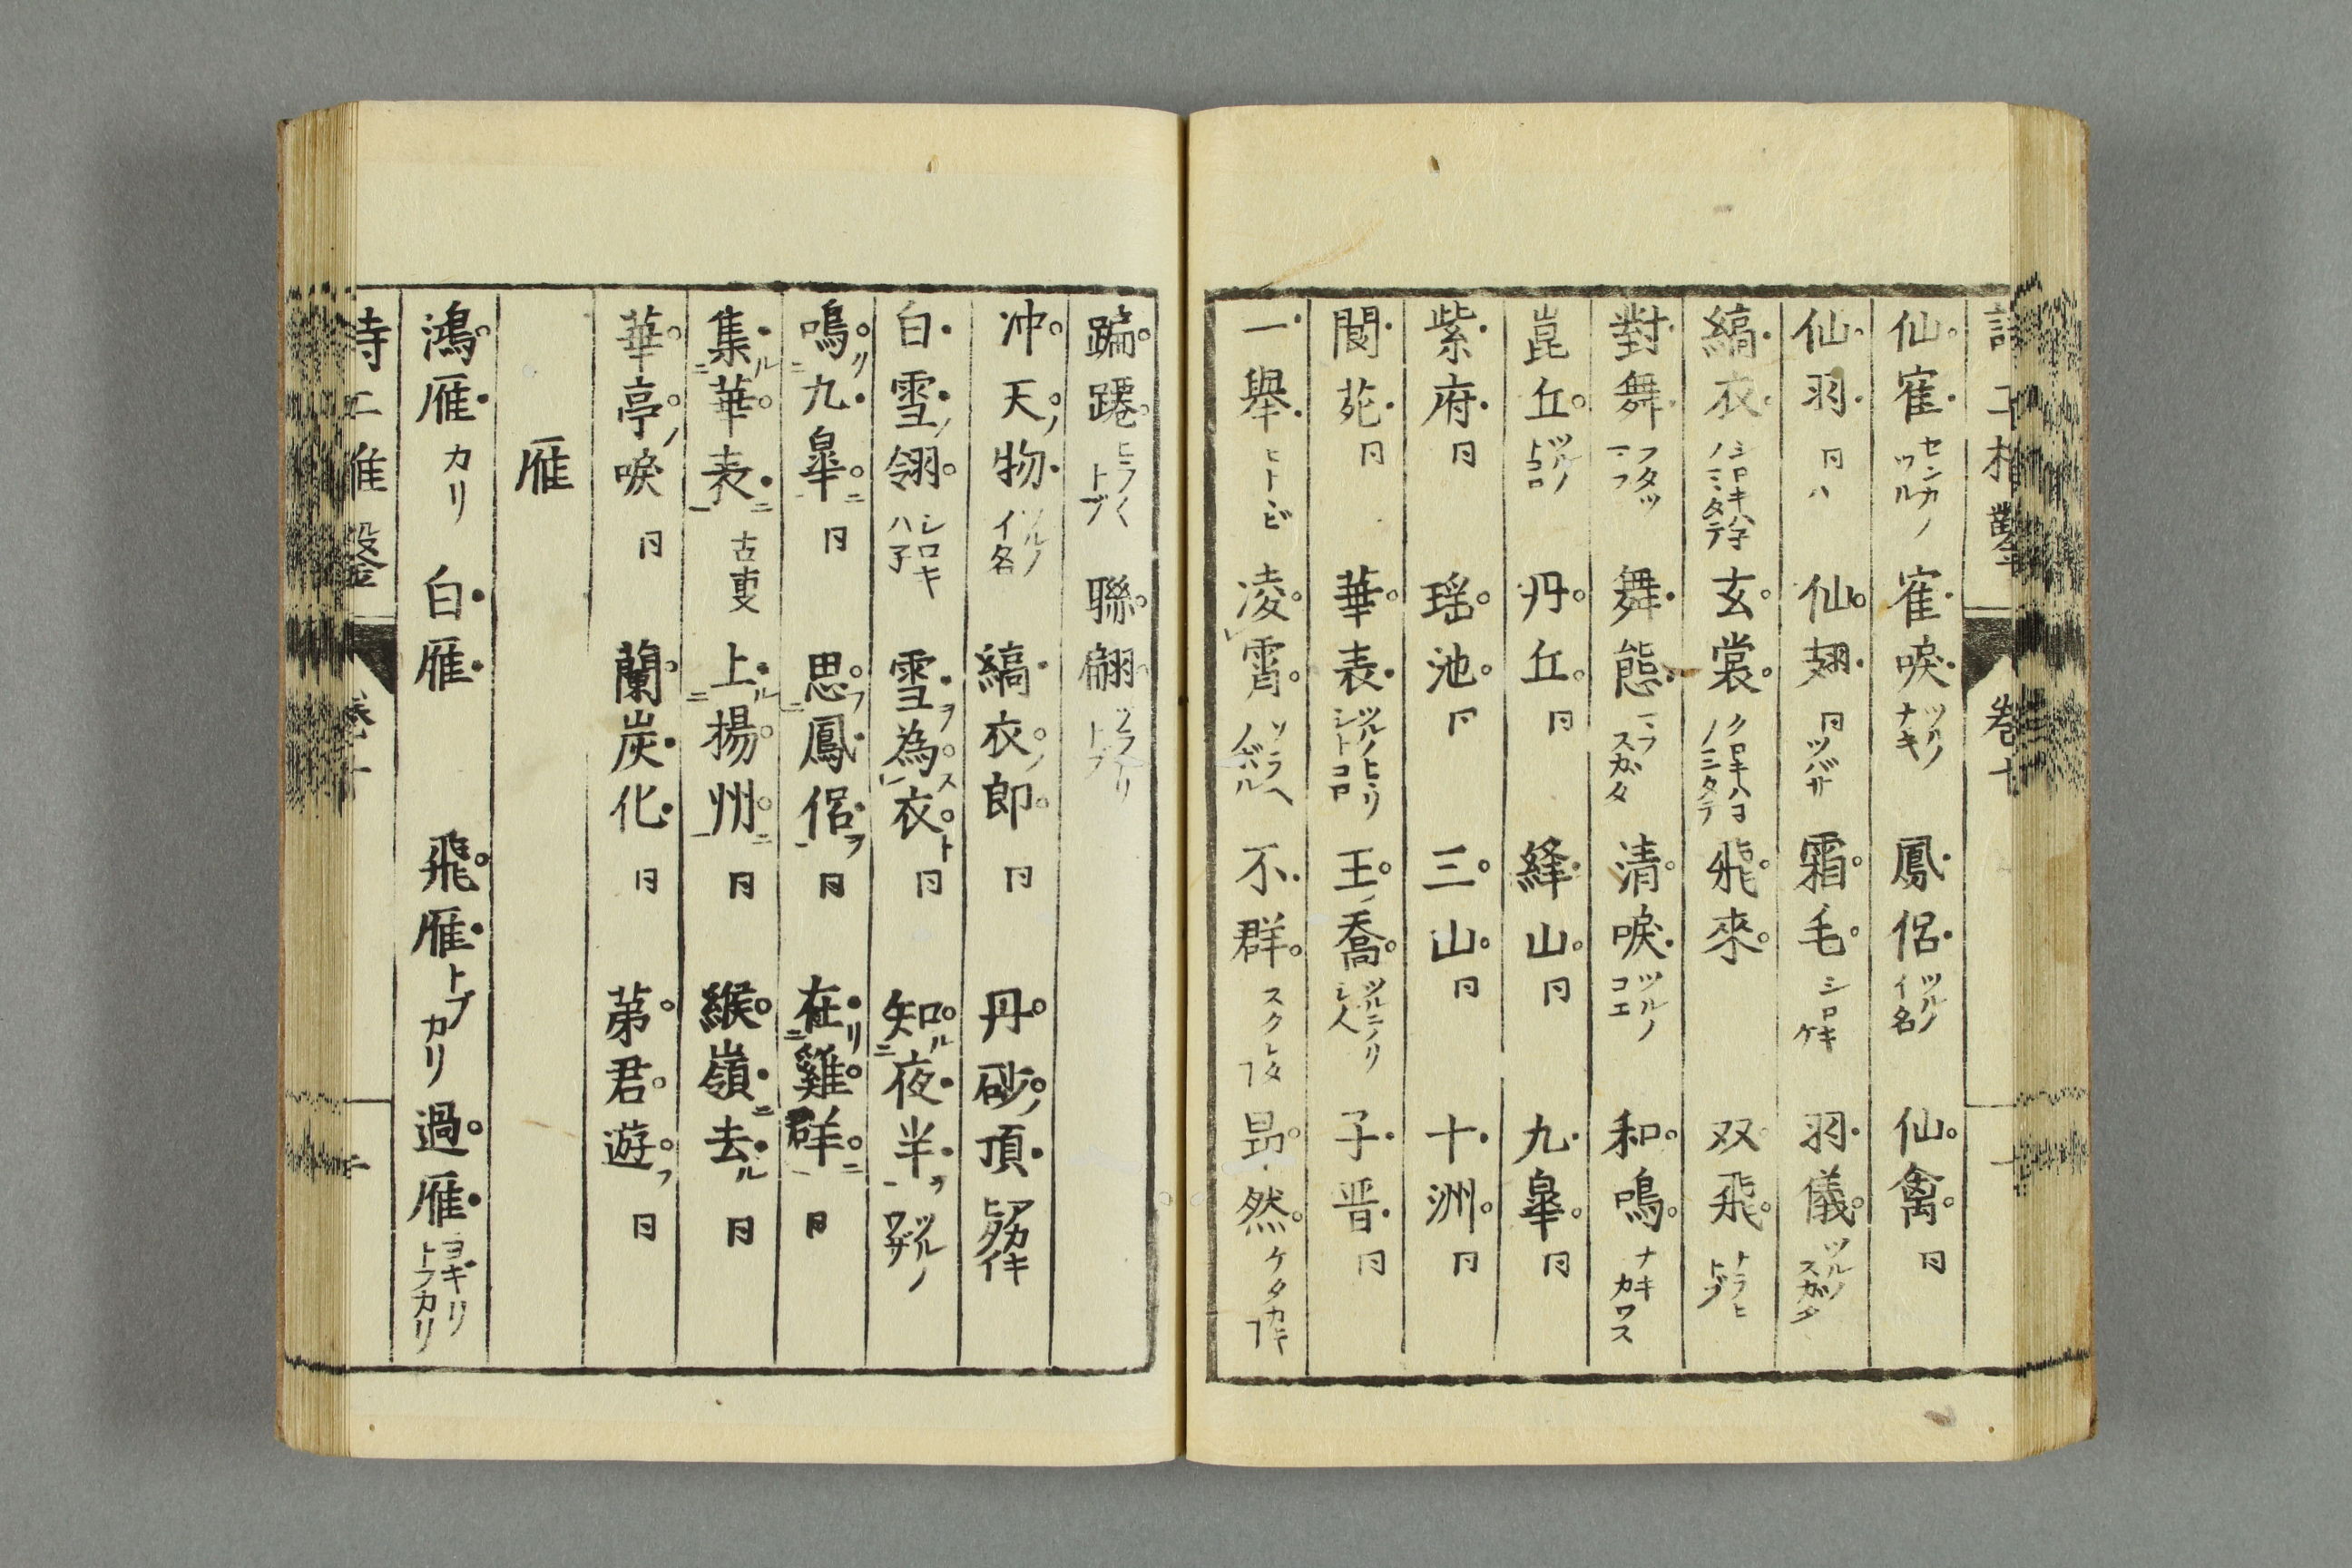 仙寉センカノツル 寉唳ツルノナキ 鳳侶ツルノイ名 仙禽同
仙羽同ハ 仙翅同ツバサ 霜毛シロキケ 羽儀ツルノスガタ
縞衣シロキハ子ノミタテ 玄裳クロキハヨノミタテ 飛來 双飛ナラヒトブ
對舞フタツマフ 舞態マフスガタ 清唳ツルノコエ 和鳴ナキカワス
崑丘ツルノトコロ 丹丘同 絳山同 九皋同
紫府同 瑶池同 三山同 十洲同
閬苑同 華表ツルノヒトリシトコロ 王喬ツルニノリシ人 子晋同
一舉ヒトトビ 凌霄ソラヘノボル 不群スクレタフ 昂然ケタカキフ
蹁躚ヒラヒラトブ 聯翩ツラナリトブ
冲天ノ物ツルノイ名 縞衣ノ郎同 丹砂ノ頂アカキヒタイ
白雪ノ翎シロキハ子 雪ヲ為ス衣ト同 知ル夜半ヲツルノワザ
鳴リ九皋ニ同 思フ鳳侶ヲ同 在リ雞群ニ同
集ル華表ニ古事 上ル揚州ニ同 緱嶺ニ去ル同
華亭ノ唳同 蘭炭化同 苐君遊フ同
雁
鴻雁カリ 白雁 飛雁トブカリ 過雁ヨギリトフカリ